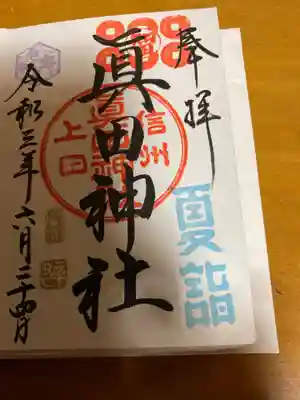 奉拝
夏詣
眞田神社
信州
眞田神社
上田
令和三年六月二十四日